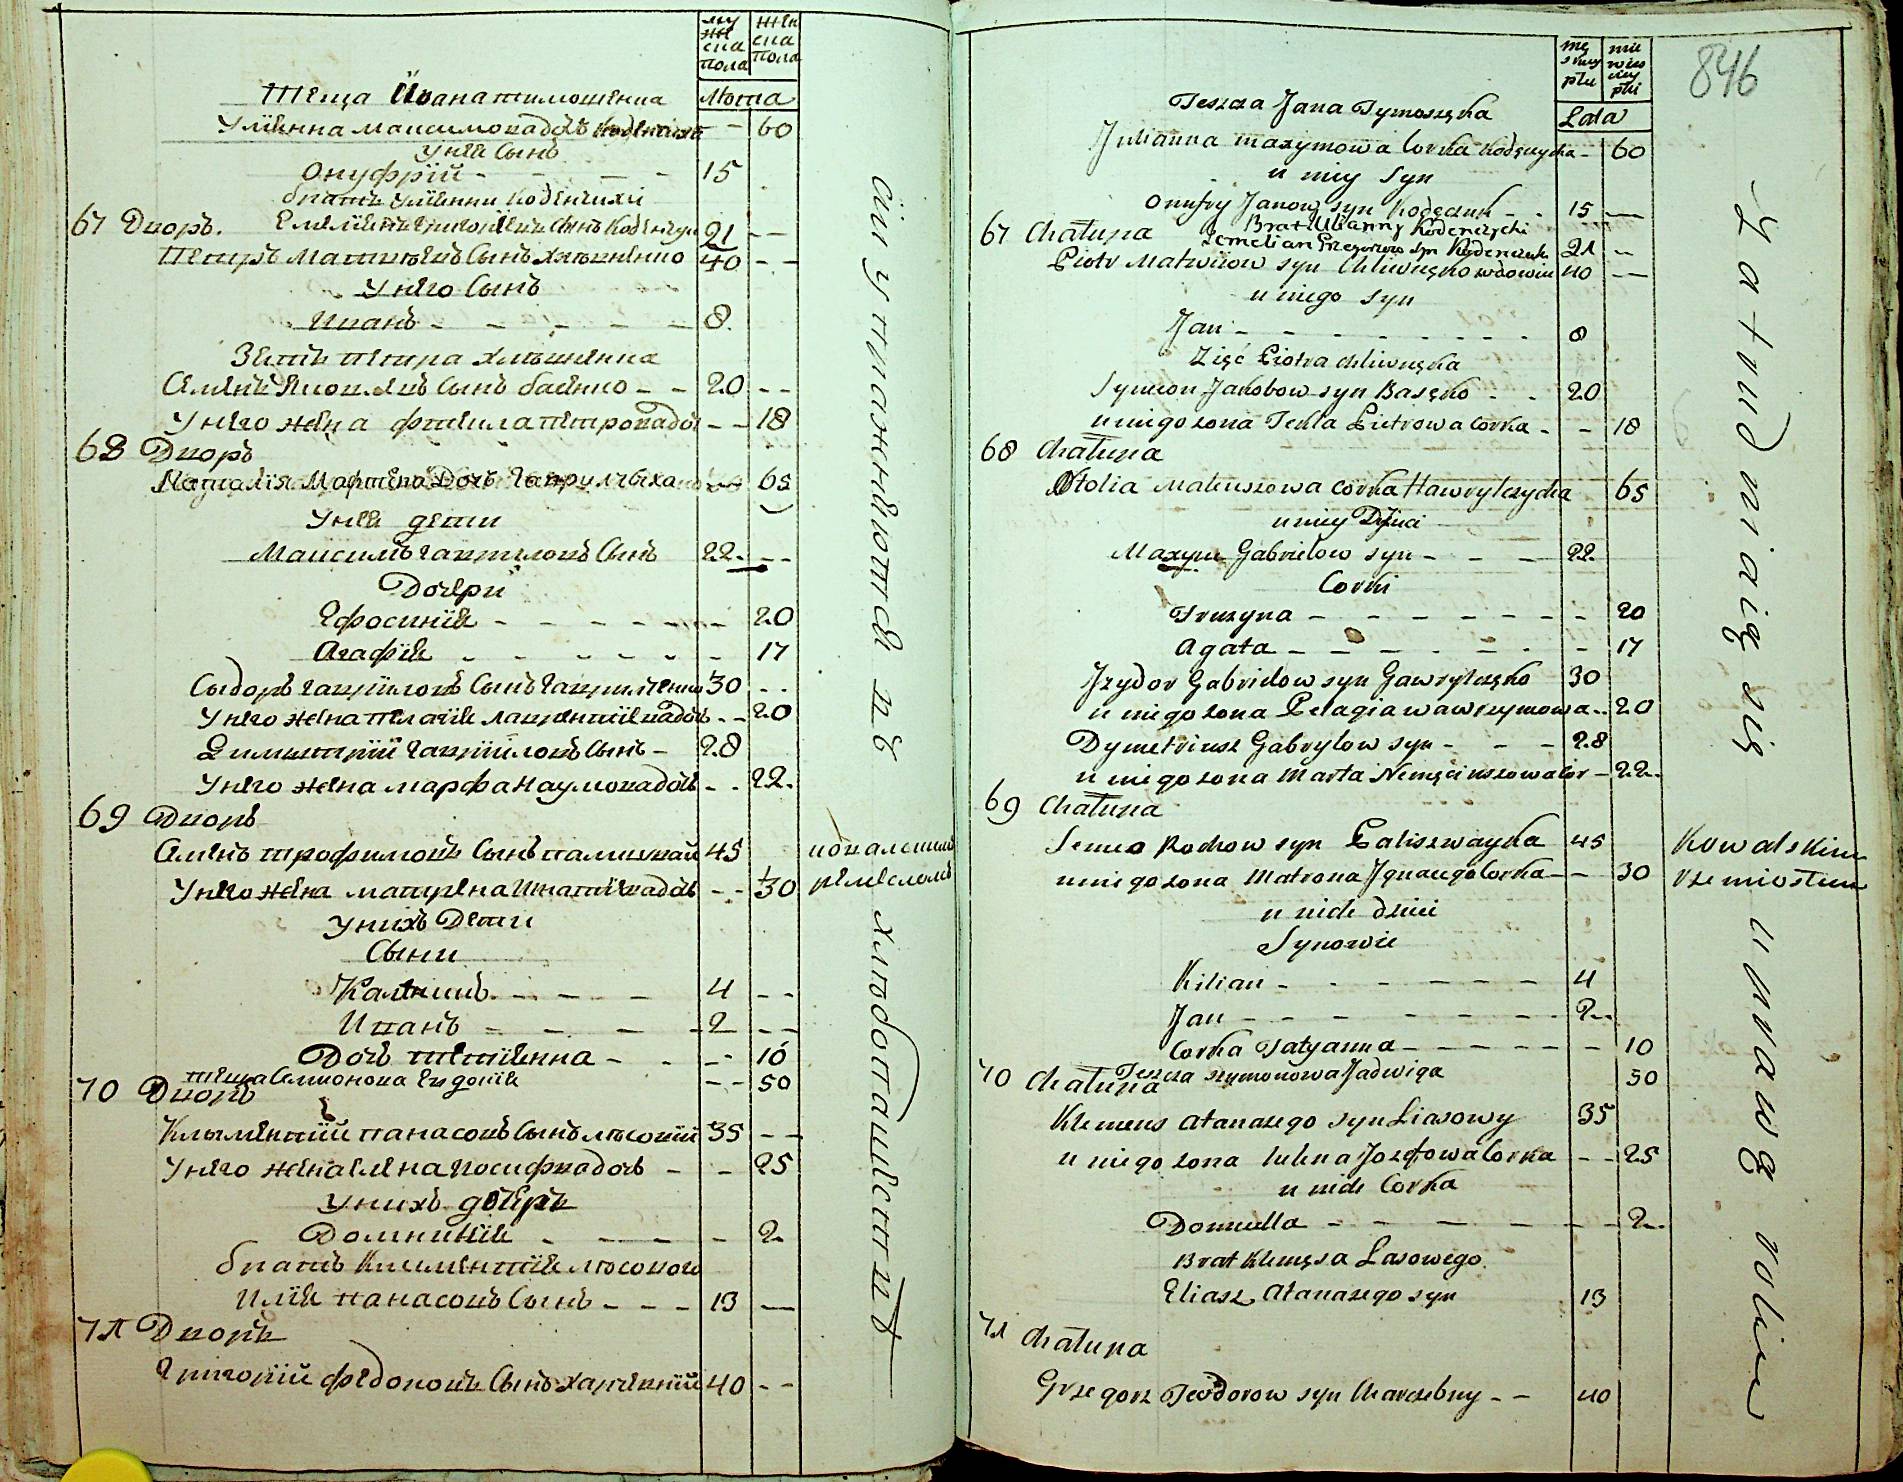 мужеска пола
женска пола
лѣта
Теща Ивана Тимошенка
Улiянна Максимова дочь Коденчиха - 60
У нея сынъ
Онуфрiй - - - - 15
братъ Улiянни Коденчихи
67 Дворъ. Емелiянъ Григорiевъ сынъ Коденчук 21 - -
Петръ Матвѣевъ сынъ Хливненко 40 - -
У него сынъ
Иванъ - - - - - 8
Зять Петра Хливненка
Семенъ Яковлевъ сынъ басенко - - 20 - -
У него жена фтекла Петрова доч - - 18
68 Дворъ
Наталiя дочь Гаврилчыха 65
У ней дети
Максимъ Гавриловъ сынъ 22 - -
Дочери
Ефосинiя - - - - - - 20
Агафiя - - - - - - 17
Сыдоръ Гавриловъ сынъ Гавриленко 30 - -
У него жена Пелагiя Лаврентiева дочь - - 20
Димитрiй Гавриловъ сынъ - 28
У него жена марфа Наумова дочь - - 22.
69 Дворъ
Семенъ трофимовъ сынъ 45
У него жена матрена Игнатiева дочь - - 30
У нихъ Дети
Сыни
- - - 4 - -
Иванъ - - - - 2 - -
Дочь тетiянна - - - 10
теща Семионова Евдокiя - - 50
70 Дворъ
Клыментiй панасовъ сынъ лѣсовiй 35 - -
У него жена елена Iосифова дочь - - 25
У нихъ дочерь
Домникiя - - - - 2
братъ Клыментiя лѣсового
Илiя панасовъ сынъ - - - 13 —
71 Дворъ
Григорiй федоровъ сынъ 40 - -
ковалскимъ
ремесломъ
Сiи упражняются въ хлѣбопашествѣ
846
męskiey płci
niewieściey płci
Lata
Teszcza Jana Tymoszęka
Julianna maxymowa Corka Kodęczycha - 60
u niey Syn
Onufry Janow syn Kodęczuk - - 15 —
Brat Ulianny Kodenczychi
67 Chałupa Jemelian Grzegorzow syn Kodenczuk 21 --
Piotr Matwiiow syn Chliwnęko wdowiec 40 —
u niego syn
Jan - - - - - - - - 8
Zięć Piotra chliwnęka
Symeon Jakobow syn Basęko - - 20
u niego zona Tekla Pietrowa corka - - 18
68 Chałupa
Natolia Mateuszowa corka Hawrylczycha 65
u niey Dzieci
Maxym Gabrielow syn - - - 22
Corki
Fruzyna - - - - - - - - 20
Agata - - - - - - - 17
Jzydor Gabrielow syn Gawrylczęko 30
u niego zona Pelagia wawrzymowa - - 20
Dymetriusz Gabrylow syn - - - 28
u niego zona Marta Cor - 22 -
69 Chałupa
Semeo syn 45
u niego zona Matrona Jgnacego Corka - - 30
u nich dzieci
Synowie
Kilian - - - - - - - 4
Jan - - - - - - - - 2 -
Corka Tatyanna - - - - - - 10
Teszcza Szymonowa Jadwiga 50
70 Chałupa
Klemens Atanazego syn Liasowy 35
u niego zona helena Jozefowa Corka - - 25
u nich Corka
Domicella - - - - - - - 2 -
Brat Klemęsa Lasowego
Eliasz Atanazego syn 13
71 Chałupa
Grzegorz Teodorow syn Charczebny - - 40
Kowalskim
rzemiosłem
Zatrudniaią się uprawą rolim